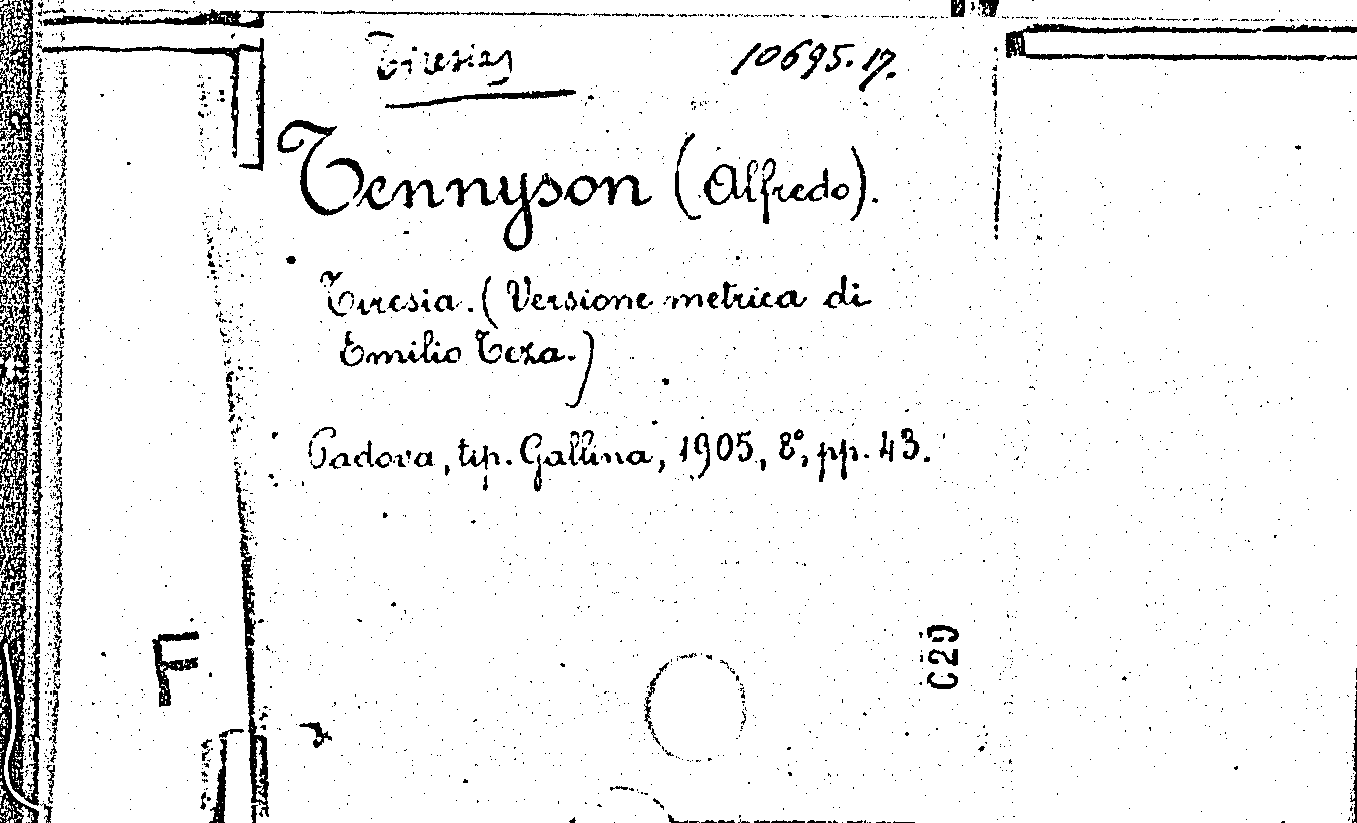 Tiresias 10695.17.
Tennyson (Alfredo).
Tiresia. (Versione metrica di
Emilio Teza.)
Padova, tip. Gallina, 1905, 8°, pp. 43.
F
C29